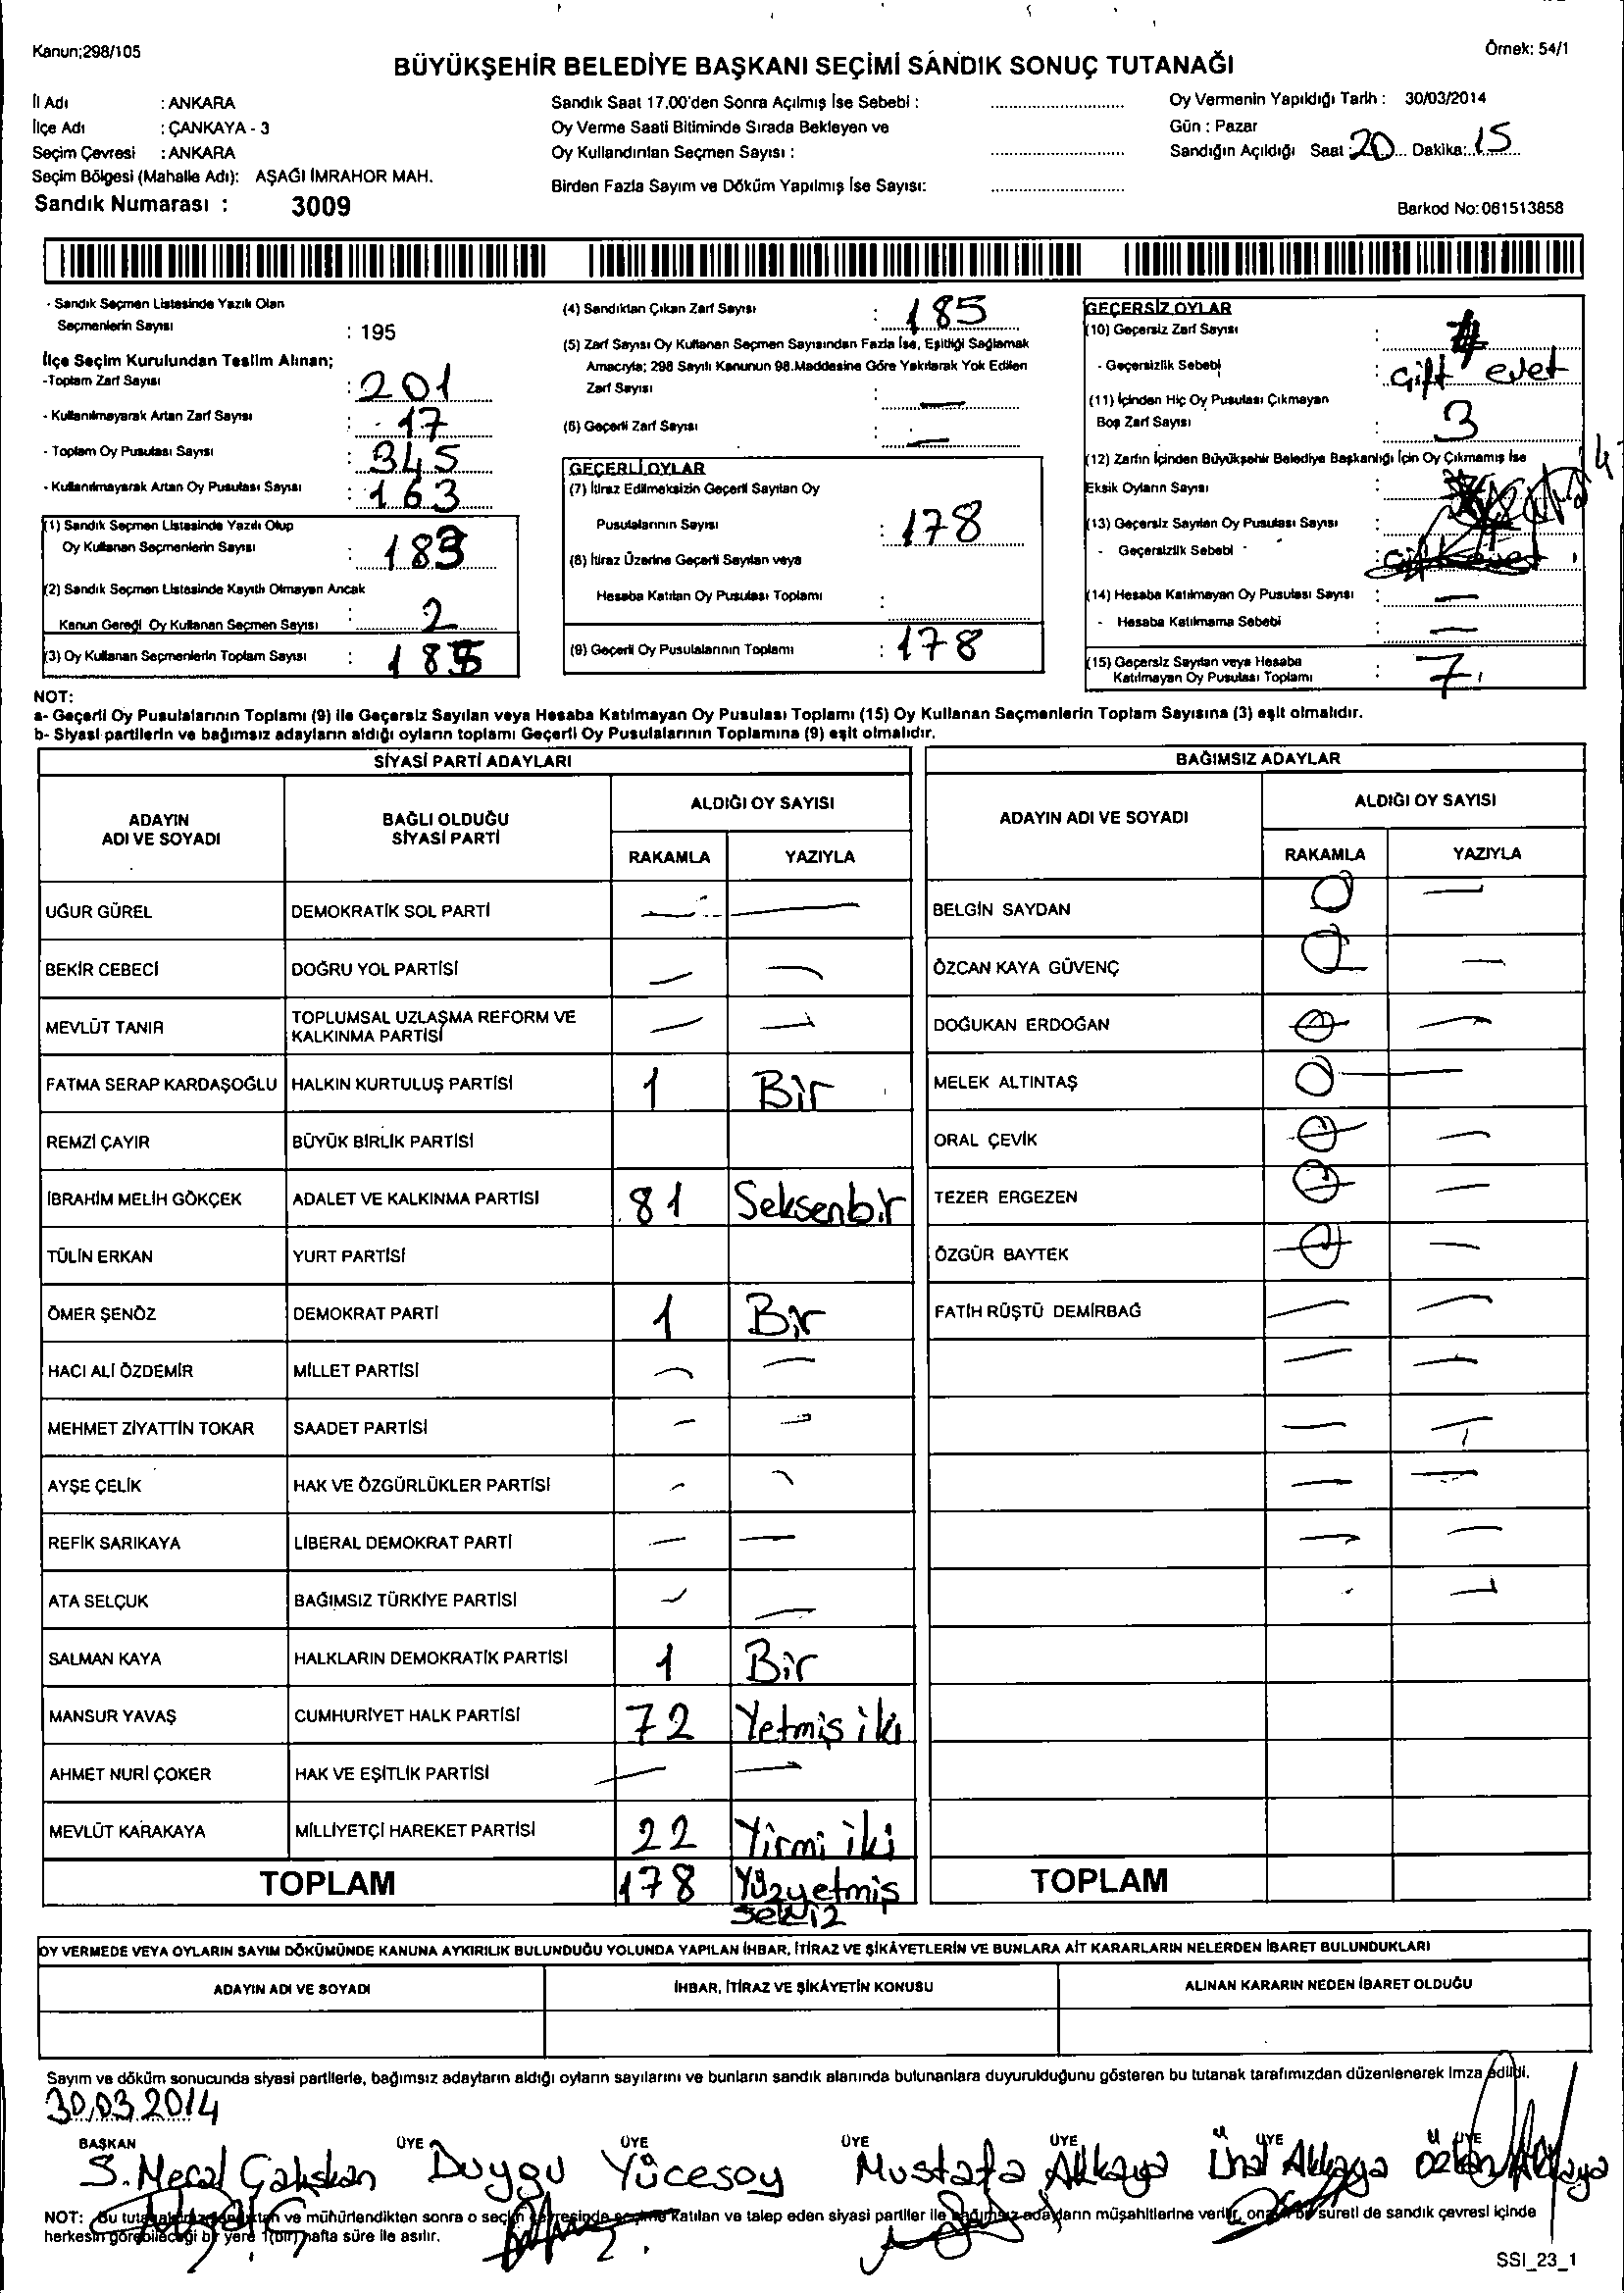 Kanun;298/105
Örnek: 54/1
BÜYÜKŞEHİR BELEDİYE BAŞKANI SEÇİMİ SANDIK SONUÇ TUTANAĞI
İl Adı : ANKARA
İlçe Adı : ÇANKAYA - 3
Seçim Çevresi : ANKARA
Seçim Bölgesi (Mahalle Adı): AŞAĞI İMRAHOR MAH.
Sandık Numarası : 3009
Sandık Saat 17.00'den Sonra Açılmış İse Sebebi :
Oy Verme Saati Bitiminde Sırada Bekleyen ve
Oy Kullandırılan Seçmen Sayısı :
Birden Fazla Sayım ve Döküm Yapılmış İse Sayısı:
Oy Vermenin Yapıldığı Tarih : 30/03/2014
Gün : Pazar
Sandığın Açıldığı Saat : 20 Dakika: 15
Barkod No:061513858
- Sandık Seçmen Listesinde Yazılı Olan
Seçmenlerin Sayısı : 195
İlçe Seçim Kurulundan Teslim Alınan;
-Toplam Zarf Sayısı : 201
- Kullanılmayarak Artan Zarf Sayısı : 17
- Toplam Oy Pusulası Sayısı : 345
- Kullanılmayarak Artan Oy Pusulası Sayısı : 163
(1) Sandık Seçmen Listesinde Yazılı Olup
Oy Kullanan Seçmenlerin Sayısı : 183
(2) Sandık Seçmen Listesinde Kayıtlı Olmayan Ancak
Kanun Gereği Oy Kullanan Seçmen Sayısı : 2
(3) Oy Kullanan Seçmenlerin Toplam Sayısı : 185
(4) Sandıktan Çıkan Zarf Sayısı : 185
(5) Zarf Sayısı Oy Kullanan Seçmen Sayısından Fazla İse, Eşitliği Sağlamak
Amacıyla; 298 Sayılı Kanunun 98.Maddesine Göre Yakılarak Yok Edilen
Zarf Sayısı : —
(6) Geçerli Zarf Sayısı : —
GEÇERLİ OYLAR
(7) İtiraz Edilmeksizin Geçerli Sayılan Oy
Pusulalarının Sayısı : 178
(8) İtiraz Üzerine Geçerli Sayılan veya
Hesaba Katılan Oy Pusulası Toplamı :
(9) Geçerli Oy Pusulalarının Toplamı : 178
GEÇERSİZ OYLAR
(10) Geçersiz Zarf Sayısı :
- Geçersizlik Sebebi : Çift evet
(11) İçinden Hiç Oy Pusulası Çıkmayan
Boş Zarf Sayısı : 3
(12) Zarfın İçinden Büyükşehir Belediye Başkanlığı İçin Oy Çıkmamış İse
Eksik Oyların Sayısı : 4
(13) Geçersiz Sayılan Oy Pusulası Sayısı :
- Geçersizlik Sebebi
(14) Hesaba Katılmayan Oy Pusulası Sayısı : —
- Hesaba Katılmama Sebebi : —
(15) Geçersiz Sayılan veya Hesaba
Katılmayan Oy Pusulası Toplamı : 7
NOT:
a- Geçerli Oy Pusulalarının Toplamı (9) ile Geçersiz Sayılan veya Hesaba Katılmayan Oy Pusulası Toplamı (15) Oy Kullanan Seçmenlerin Toplam Sayısına (3) eşit olmalıdır.
b- Siyasi partilerin ve bağımsız adayların aldığı oyların toplamı Geçerli Oy Pusulalarının Toplamına (9) eşit olmalıdır.
SİYASİ PARTİ ADAYLARI
ADAYIN ADI VE SOYADI
BAĞLI OLDUĞU SİYASİ PARTİ
ALDIĞI OY SAYISI
RAKAMLA YAZIYLA
UĞUR GÜREL DEMOKRATİK SOL PARTİ — —
BEKİR CEBECİ DOĞRU YOL PARTİSİ — —
MEVLÜT TANIR TOPLUMSAL UZLAŞMA REFORM VE KALKINMA PARTİSİ — —
FATMA SERAP KARDAŞOĞLU HALKIN KURTULUŞ PARTİSİ 1 Bir
REMZİ ÇAYIR BÜYÜK BİRLİK PARTİSİ
İBRAHİM MELİH GÖKÇEK ADALET VE KALKINMA PARTİSİ 81 Seksenbir
TÜLİN ERKAN YURT PARTİSİ
ÖMER ŞENÖZ DEMOKRAT PARTİ 1 Bir
HACI ALİ ÖZDEMİR MİLLET PARTİSİ — —
MEHMET ZİYATTİN TOKAR SAADET PARTİSİ — —
AYŞE ÇELİK HAK VE ÖZGÜRLÜKLER PARTİSİ — —
REFİK SARIKAYA LİBERAL DEMOKRAT PARTİ — —
ATA SELÇUK BAĞIMSIZ TÜRKİYE PARTİSİ — —
SALMAN KAYA HALKLARIN DEMOKRATİK PARTİSİ 1 Bir
MANSUR YAVAŞ CUMHURİYET HALK PARTİSİ 72 Yetmiş iki
AHMET NURİ ÇOKER HAK VE EŞİTLİK PARTİSİ — —
MEVLÜT KARAKAYA MİLLİYETÇİ HAREKET PARTİSİ 22 Yirmi iki
TOPLAM 178 Yüzyetmiş sekiz
BAĞIMSIZ ADAYLAR
ADAYIN ADI VE SOYADI
ALDIĞI OY SAYISI
RAKAMLA YAZIYLA
BELGİN SAYDAN 0 —
ÖZCAN KAYA GÜVENÇ 0 —
DOĞUKAN ERDOĞAN 0 —
MELEK ALTINTAŞ 0 —
ORAL ÇEVİK 0 —
TEZER ERGEZEN 0 —
ÖZGÜR BAYTEK 0 —
FATİH RÜŞTÜ DEMİRBAĞ — —
TOPLAM
OY VERMEDE VEYA OYLARIN SAYIM DÖKÜMÜNDE KANUNA AYKIRILIK BULUNDUĞU YOLUNDA YAPILAN İHBAR, İTİRAZ VE ŞİKÂYETLERİN VE BUNLARA AİT KARARLARIN NELERDEN İBARET BULUNDUKLARI
ADAYIN ADI VE SOYADI İHBAR, İTİRAZ VE ŞİKÂYETİN KONUSU ALINAN KARARIN NEDEN İBARET OLDUĞU
Sayım ve döküm sonucunda siyasi partilerle, bağımsız adayların aldığı oyların sayılarını ve bunların sandık alanında bulunanlara duyurulduğunu gösteren bu tutanak tarafımızdan düzenlenerek imza edildi.
30.03.2014
BAŞKAN ÜYE ÜYE ÜYE ÜYE ÜYE ÜYE
S. Meral Çalışkan Duygu Yücesoy Mustafa Akkaya Ünal Akkaya
NOT: Bu tutanak ve mühürlendikten sonra o seçim çevresinde seçime katılan ve talep eden siyasi partiler ile bağımsız adayların müşahitlerine verilir, sureti de sandık çevresi içinde
herkesin görebileceği bir yere 1(bir) hafta süre ile asılır.
SSI_23_1